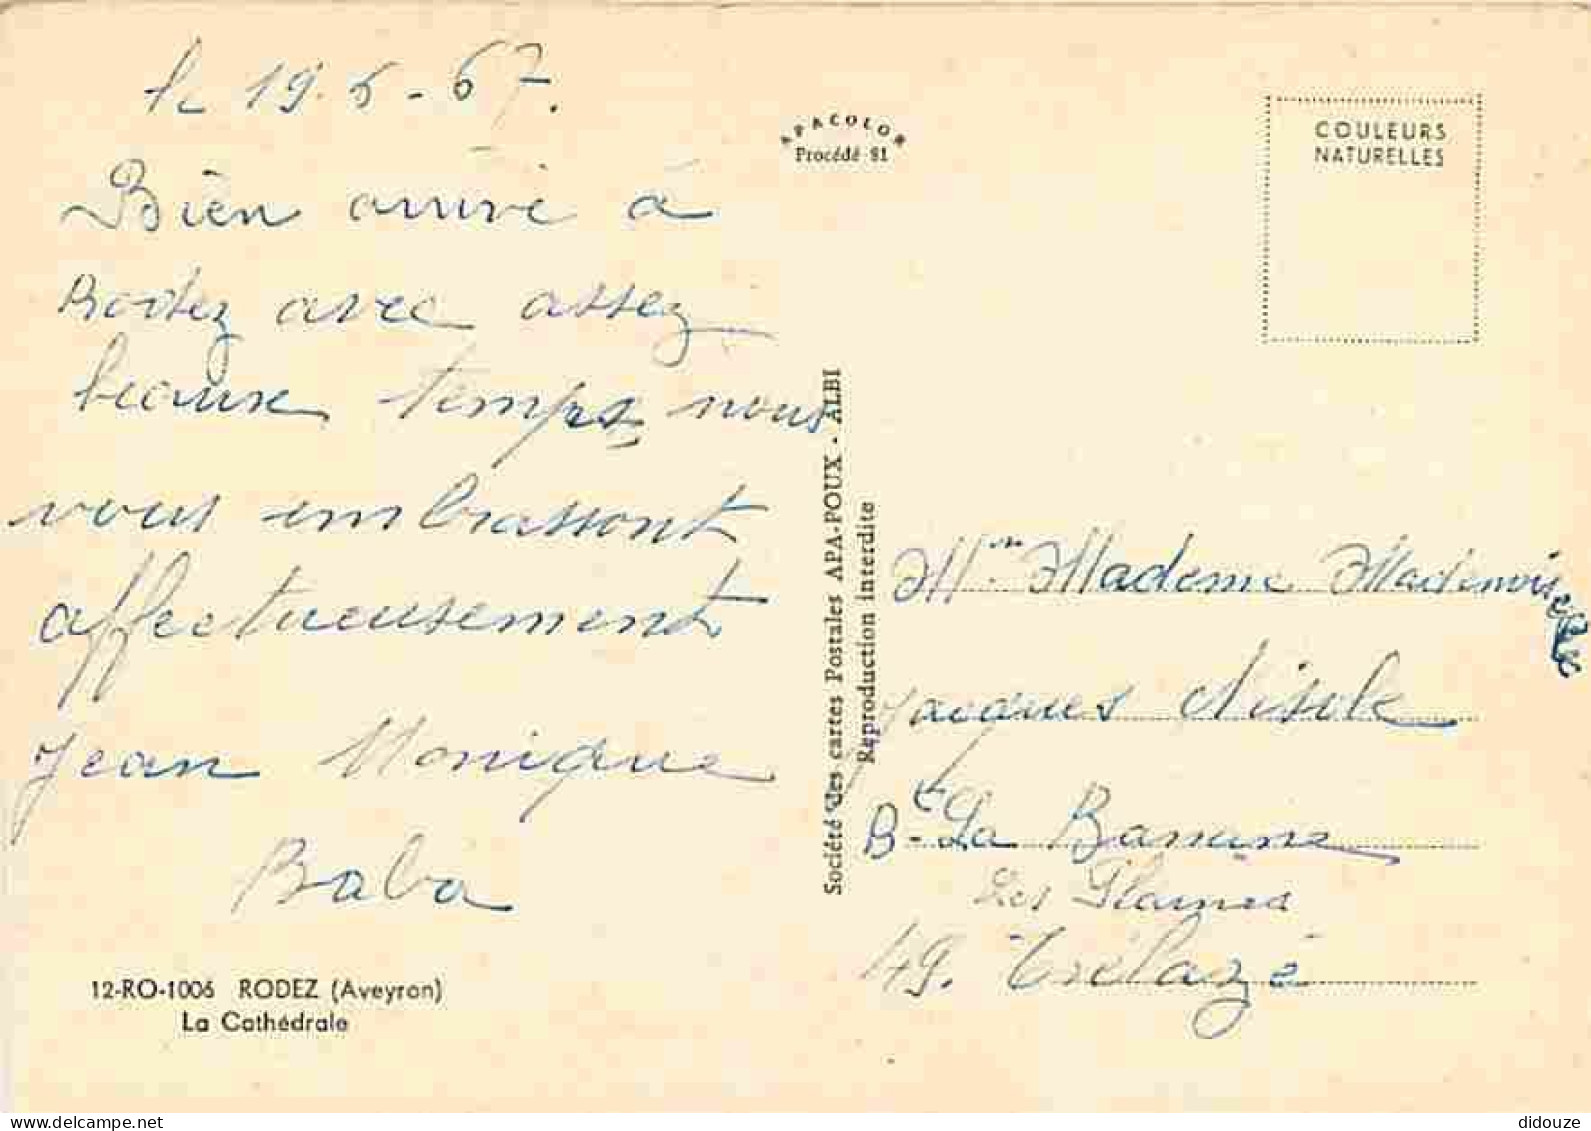 le 19.5-67.
Bien arrivé à
Rodez avec assez
beaux temps nous
vous embrassont
affectueusement
Jean Monique
Baba
12-RO-1006 RODEZ (Aveyron)
La Cathédrale
APACOLOR
Procédé 81
Société des cartes Postales APA-POUX - ALBI
Reproduction interdite
COULEURS
NATURELLES
Mr. Madame Mademoiselle
Jacques
Bt La
Les Plaines
49. Trélazé
www.delcampe.net
didouze